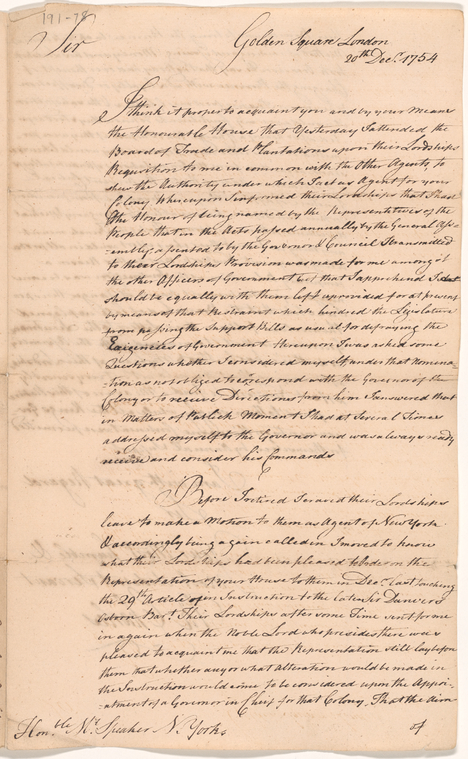 191-78
Sir
Golden Square London
20th Decr. 1754
I think it proper to acquaint you and by your Means
the Honourable House that Yesterday I attended the
Board of Trade and Plantations upon their Lordships
Requisition to me in common with the Other Agents, to
shew the Authority under which I act as Agent for your
Colony Whereupon I informed their Lordships that I had
the Honour of being named by the Representatives of the
People that in the Acts passed annually by the General Ass-
-embly assented to by the Governor & Council & transmitted
to their Lordships Provision was made for me amongst
the other Officers of Government but that I apprehend I
should be equally with them left unprovided for at present
by means of that Restraint which hindred the Legislature
from passing the Support Bills as usual for defraying the
Exigencies of Government thereupon I was asked some
Questions whether I considered myself under that Nomena-
-tion as not obliged to correspond with the Governor of the
Colony or to receive Directions from him I answered that
in Matters of Publick Moment I had at several Times
addressed myself to the Governor and was always ready
receive and consider his Commands
Before I retired I craved their Lordships
leave to make a Motion to them as Agent of New York
& accordingly being again called in I moved to know
what their Lordships had been pleased to do on the
Representation of your House to them in Decr. last touching
the 29th Article of an Instruction to the late Sr Danvers
Osborn Bart. Their Lordships after some Time sent for me
in again when the Noble Lord who presides there was
pleased to acquaint me that the Representation still lay before
them that whether any or what Alteration would be made in
the Instruction would come to be considered upon the Appoi-
-ntment of a Governor in Chief for that Colony, That the
of
Honble. Mr. Speaker N. York